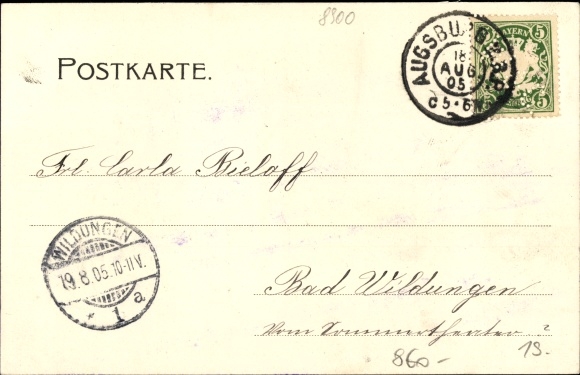 8900
POSTKARTE.
AUGSBURG
18
AUG
05
BAYERN
5
5
5
Frl. Carla Bieloff
WILDUNGEN
19.8.05.10-11V.
* 1 a
Bad Wildungen
Vom Sommertheater ?
860.-
19.-